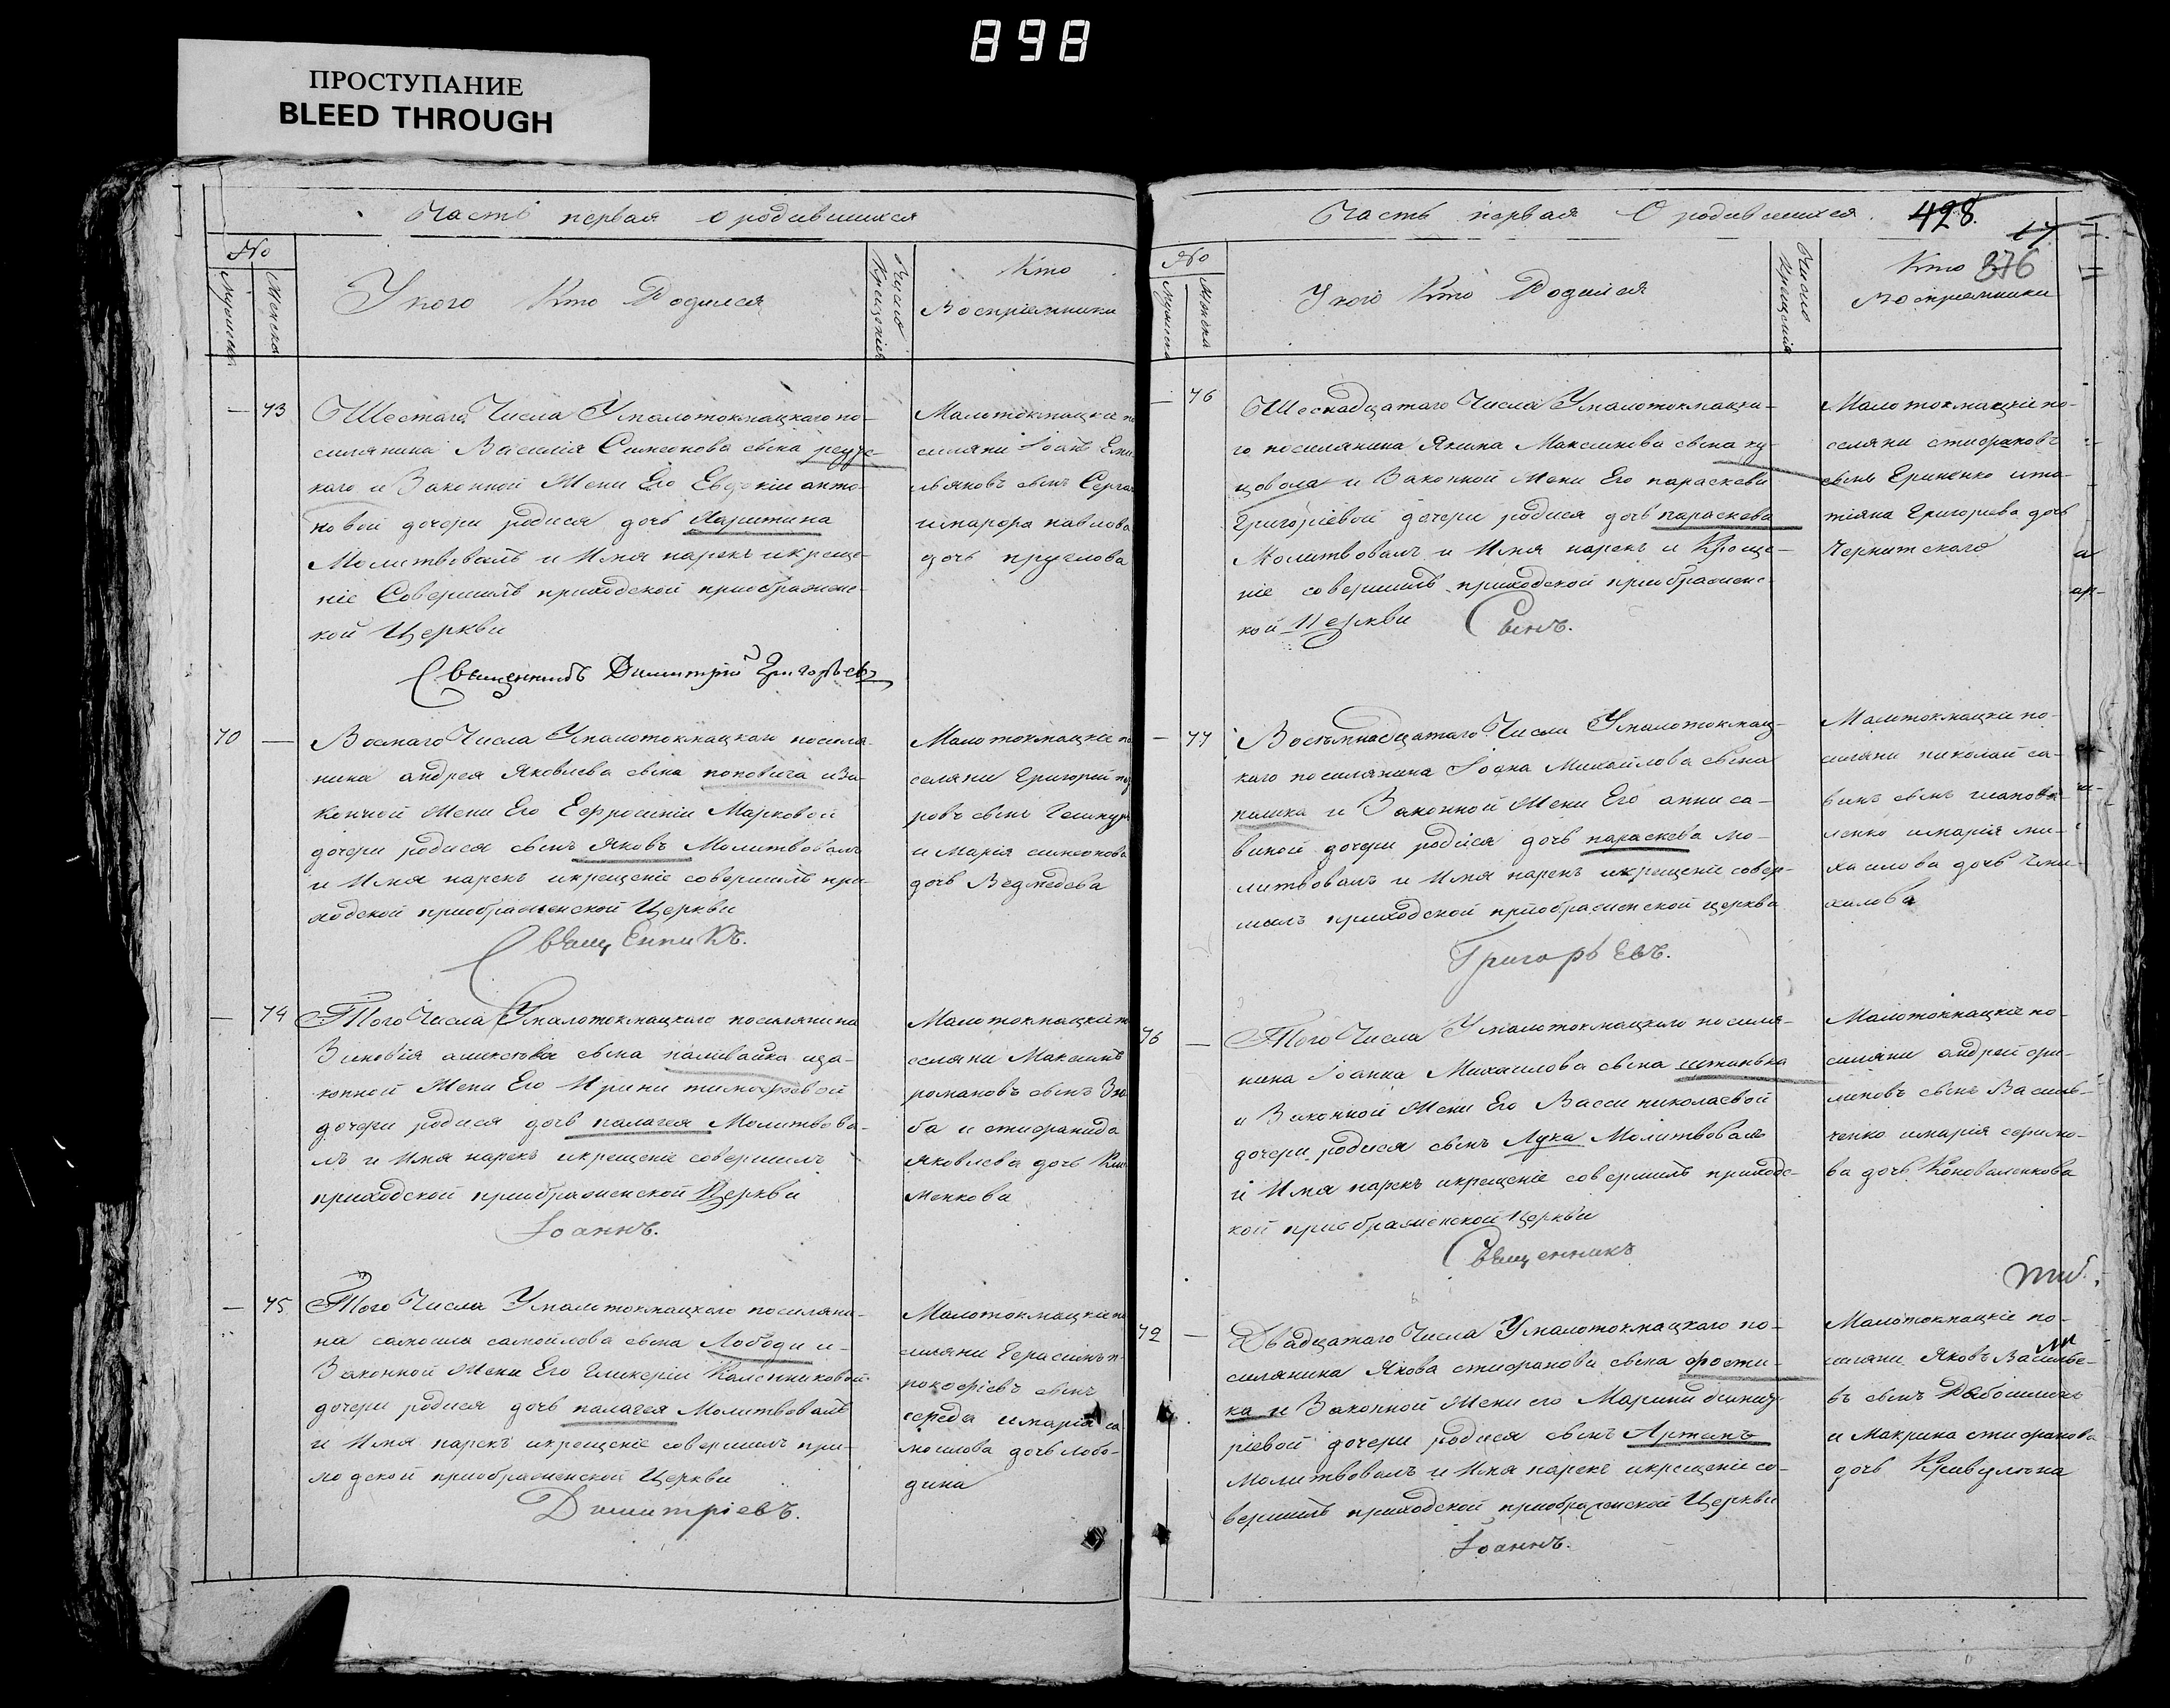 898
ПРОСТУПАНИЕ
BLEED THROUGH
Часть первая о родившихся
No
Мужеска
Женска
У кого Кто Родился
Число Крещение
Кто
Воспріемники
73
Шестаго Числа Умалотокмацкаго по-
силянина Василія Симеонова сына
каго и Законной Жени Его Евдокіи анто-
новой дочери родися дочь Харитина
Молитвовалъ и Имя нарекъ икреще-
ніе Совершилъ приходской приображенс-
кой Церкви
Священникъ Димитрій Григорьевъ
Малотокмацкіе по
силяни Іоанъ Еми
льяновъ сынъ
павлова
дочь
70
Восмаго Числа Умалотокмацкаго посиля-
нина андрея Яковлева сына поповича иЗа-
конной Жени Его Ефросініи Марковой
дочери родися сынъ Яковъ Молитвовалъ
и Имя нарекъ икрещеніе совершилъ при-
ходской приображенской Церкви
Священникъ.
Малотокмацкіе по
селяни Григорій
ровъ сынъ
и Марія симеонова
дочь Ведмедева
74
Того Числа Умалотокмацкаго посилянина
Зиновія алексѣева сына наливайка иза-
конной Жени Его Ирини тимофеевой
дочери родися дочь палагея Молитвова-
лъ и Имя нарекъ икрещеніе совершилъ
приходской приображенской Церкви
Іоаннъ.
Малотокмацкіе по
селяни Максимъ
романовъ сынъ
ба и стифанида
Яковлева дочь Кли
менкова
75
Того Числа Умалотокмацкаго посиляни-
на самоила самойлова сына Лободи и-
Законной Жени Его Гликеріи Калениковой
дочери родися дочь палагея Молитвовалъ
и Имя нарекъ икрещеніе совершилъ при-
ходской приображенской Церкви
Димитріевъ.
Малотокмацкіе по
силяни Герасимъ п-
рокофіевъ сынъ
середа имарія са
моилова дочь лобо-
дина
Часть первая О родившихся.
428
17
376
No
Мужеска
Женска
У кого Кто Родился
Число Крещенія
Кто
Воспріемники
76
Шеснадцатаго Числа Умалотокмацка-
го посилянина Якима Максимова сына ку-
цовола и Законной Жени Его параскеви
Григоріевой дочери родися дочь параскева
Молитвовалъ и Имя нарекъ и Креще-
ніе совершилъ приходской приображенс-
кой Церкви Сынъ.
Малотокмацкіе по-
селяни стифановъ
сынъ Гриненко ита-
тіяна Григорева дочь
77
Восемнадцатаго Числа Умалотокмац-
каго посилянина Іоана Михайлова сына
пашка и Законной Жени Его анни са-
виной дочери родися дочь параскева мо-
литвовалъ и Имя нарекъ икрещеніе совер-
шилъ приходской приображенской церкви
Григорьевъ.
Малотокмацкіе по-
силяни николай са-
винъ сынъ гапова-
ленко имарія ми-
хаилова дочь
76
Того Числа Умалотокмацкаго посиля-
нина Іоанна Михаилова сына
и Законной Жени Его Васси николаевой
дочери родися сынъ Лука Молитвовалъ
и Имя нарекъ икрещеніе совершилъ приходс-
кой приображенской Церкви
Священникъ
Малотокмацкіе по-
силяни андрей фи-
липовъ сынъ Василь-
ченко имарія ефимо-
ва дочь Коноваленкова
72
Двадцатаго Числа Умалотокмацкаго по-
силянина Якова стифанова сына фости-
ка и Законной Жени его Марини димит-
ріевой дочери родися сынъ Артемъ
Молитвовалъ и Имя нарекъ икрещеніе со-
вершилъ приходской приображенской Церкви
Іоаннъ.
Малотокмацкіе по-
силяни Яковъ Василье-
въ сынъ
и Макрина стифанова
дочь